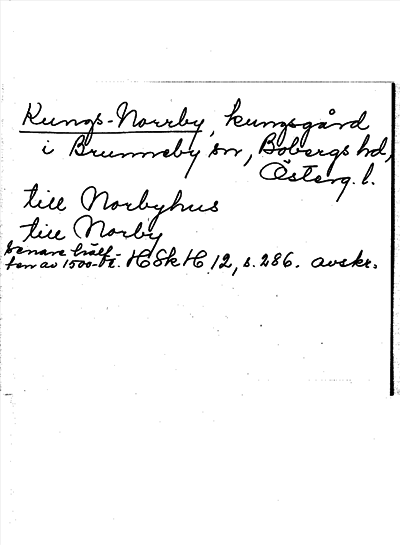 Kungs-Norrby, kungsgård
i Brunneby sn, Bobergs hd,
Österg. l.
till Norbyhus
till Norby
senare hälf-
ten av 1500-t. HSkH 12, s. 286. avskr.